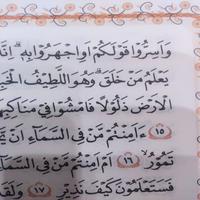 وَاَسِرُّوْا قَوْلَكُمْ اَوِاجْهَرُوْا بِهٖ ۗ اِنَّهٗ
يَعْلَمُ مَنْ خَلَقَ ۗ وَهُوَ اللَّطِيْفُ
الْاَرْضَ ذَلُوْلًا فَامْشُوْا فِيْ مَنَاكِبِهَا
١٥ ءَاَمِنْتُمْ مَّنْ فِى السَّمَاۤءِ اَنْ
تَمُوْرُ ۙ ١٦ اَمْ اَمِنْتُمْ مَّنْ فِى السَّمَاۤءِ
فَسَتَعْلَمُوْنَ كَيْفَ نَذِيْرِ ١٧ وَلَقَدْ